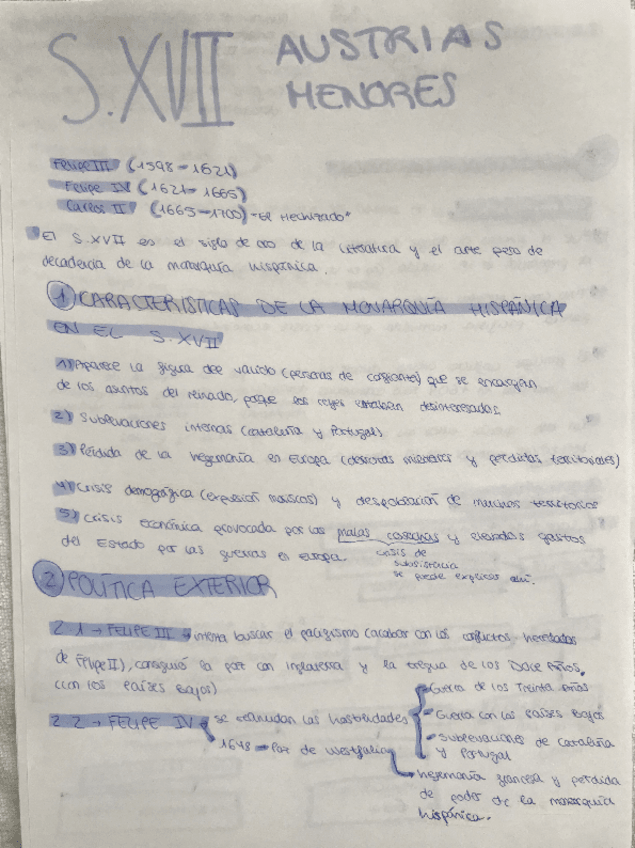 S.XVII AUSTRIAS
MENORES
Felipe III (1598-1621)
Felipe IV (1621-1665)
Carlos II (1665-1700) "El Hechizado"
El S.XVII es el siglo de oro de la literatura y el arte pero de
decadencia de la monarquía hispánica.
1 CARACTERISTICAS DE LA MONARQUÍA HISPÁNICA
EN EL S.XVII
1) Aparece la figura del valido (personas de confianza) que se encargan
de los asuntos del reinado, porque los reyes estaban desinteresados.
2) Sublevaciones internas (Cataluña y Portugal)
3) Pérdida de la hegemonía en Europa (derrotas militares y pérdidas territoriales)
4) Crisis demográfica (expulsión moriscos) y despoblación de muchos territorios
5) Crisis económica provocada por las malas cosechas y elevados gastos
del Estado por las guerras en Europa.
crisis de
subsistencia
se puede explicar aquí.
2 POLÍTICA EXTERIOR
2.1 → FELIPE III → intenta buscar el pacifismo (acabar con los conflictos heredados
de Felipe II), consiguió la paz con Inglaterra y la tregua de los Doce Años,
(con los Países Bajos)
2.2 → FELIPE IV se reanudan las hostilidades
Guerra de los Treinta Años
Guerra con los Países Bajos
Sublevaciones de Cataluña
y Portugal
1648 → Paz de Westfalia
hegemonía francesa y pérdida
de poder de la monarquía
hispánica.